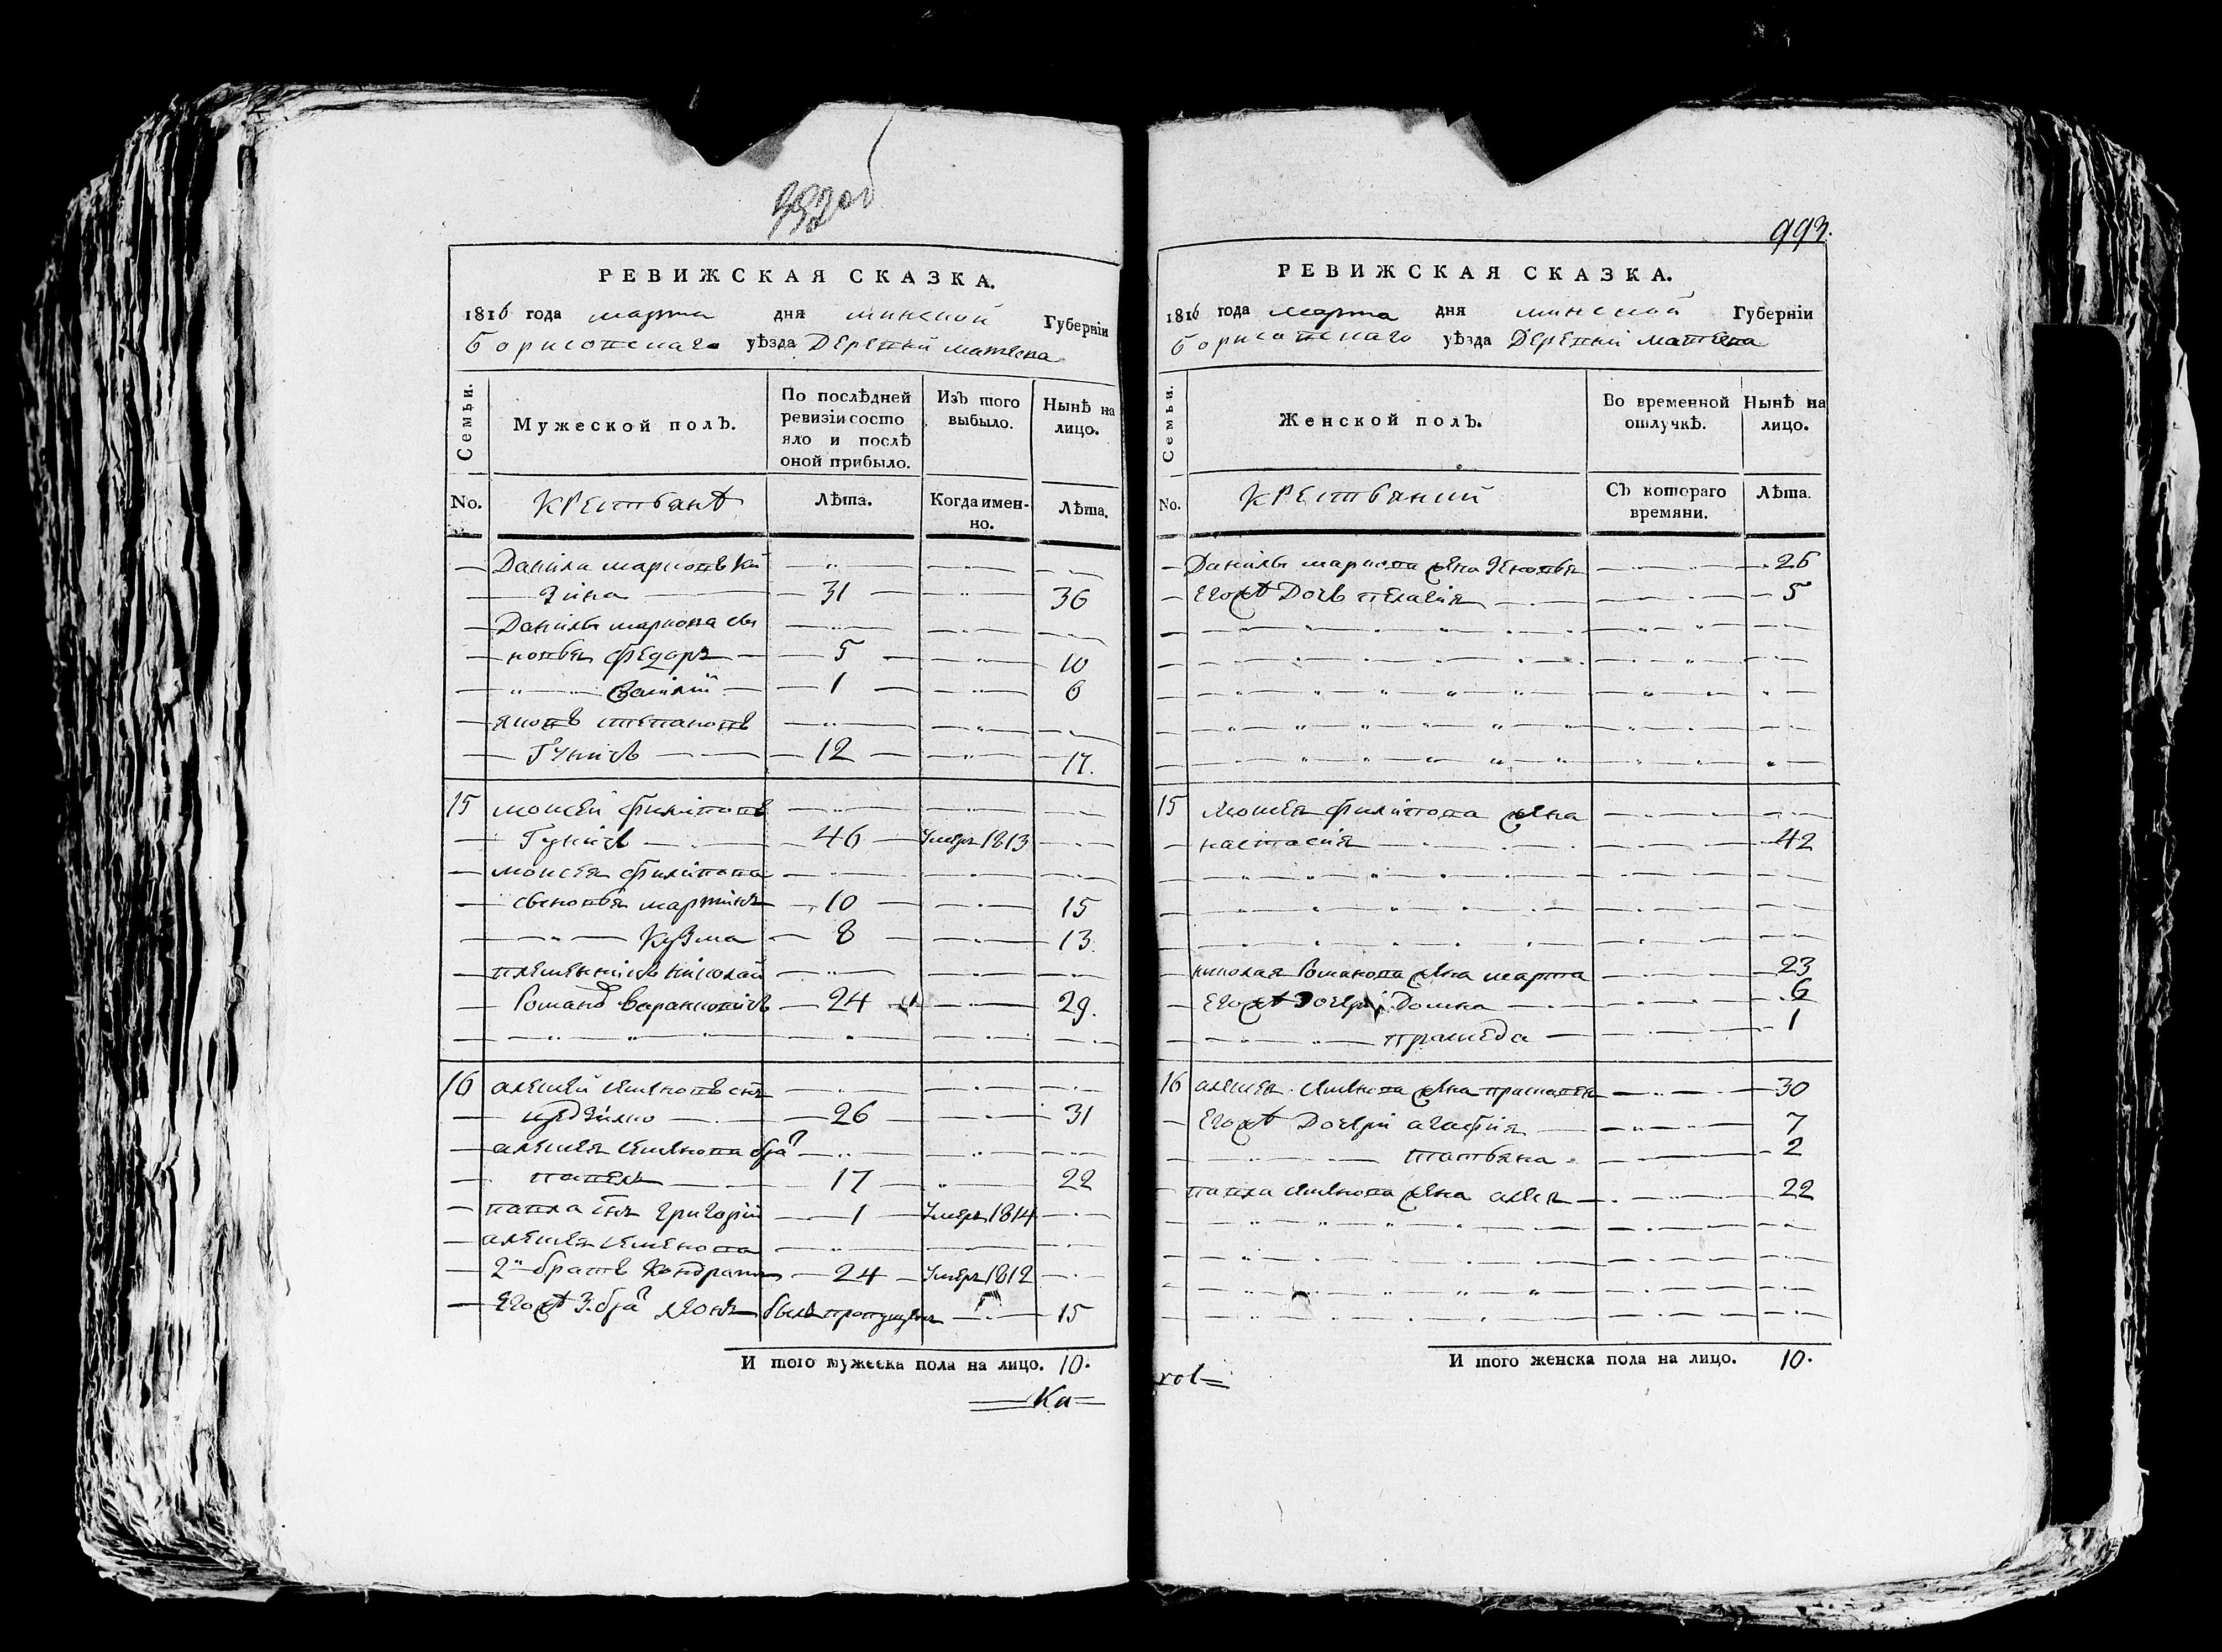 993.
РЕВИЖСКАЯ СКАЗКА.
1816 года марта дня минской Губерніи
Борисовскаго уѣзда Деревни
Семьи.
Мужеской полъ.
По послѣдней ревизіи состо яло и послѣ оной прибыло.
Изъ того выбыло.
Нынѣ на лицо.
No.
Крестьянѣ
Лѣта.
Когда имен-но.
Лѣта.
Данила марковъ
31 36
Данилы маркова сы
новья Федоръ 5 10
Василій 1 6
яковъ степановъ
Гуничъ 12 17.
15 моисей филиповъ
Гуничъ 46 Умеръ 1813
моисея филипова
сыновья мартинъ 10 15
Кузма 8 13.
племенникъ николай
Романъ 24 29.
16 алексей семеновъ сынъ
26 31
алексея семенова бра т
павелъ 17 22
павла сынъ григорій 1 Умеръ 1814
алексея семенова
2й братъ Кондратъ 24 Умеръ 1812
Егожъ 3. бра т леонъ былъ пропущенъ 15
И того мужеска пола на лицо. 10.
Ка
РЕВИЖСКАЯ СКАЗКА.
1816 года марта дня минской Губерніи
Борисовскаго уѣзда Деревни
Семьи.
Женской полъ.
Во временной отлучкѣ.
Нынѣ на лицо.
No.
Крестьянки
Съ котораго времяни.
Лѣта.
Данилы маркова жена Зеновья 26
Егожъ Дочь пелагія 5
15 моисея филипова жена
настасія 42
николая Романова жена марта 23
Егожъ Дочери Домна 6
1
16 алексея семенова жена 30
Егожъ Дочери агафія 7
татьяна 2
павла семенова жена 22
И того женска пола на лицо. 10.
rol